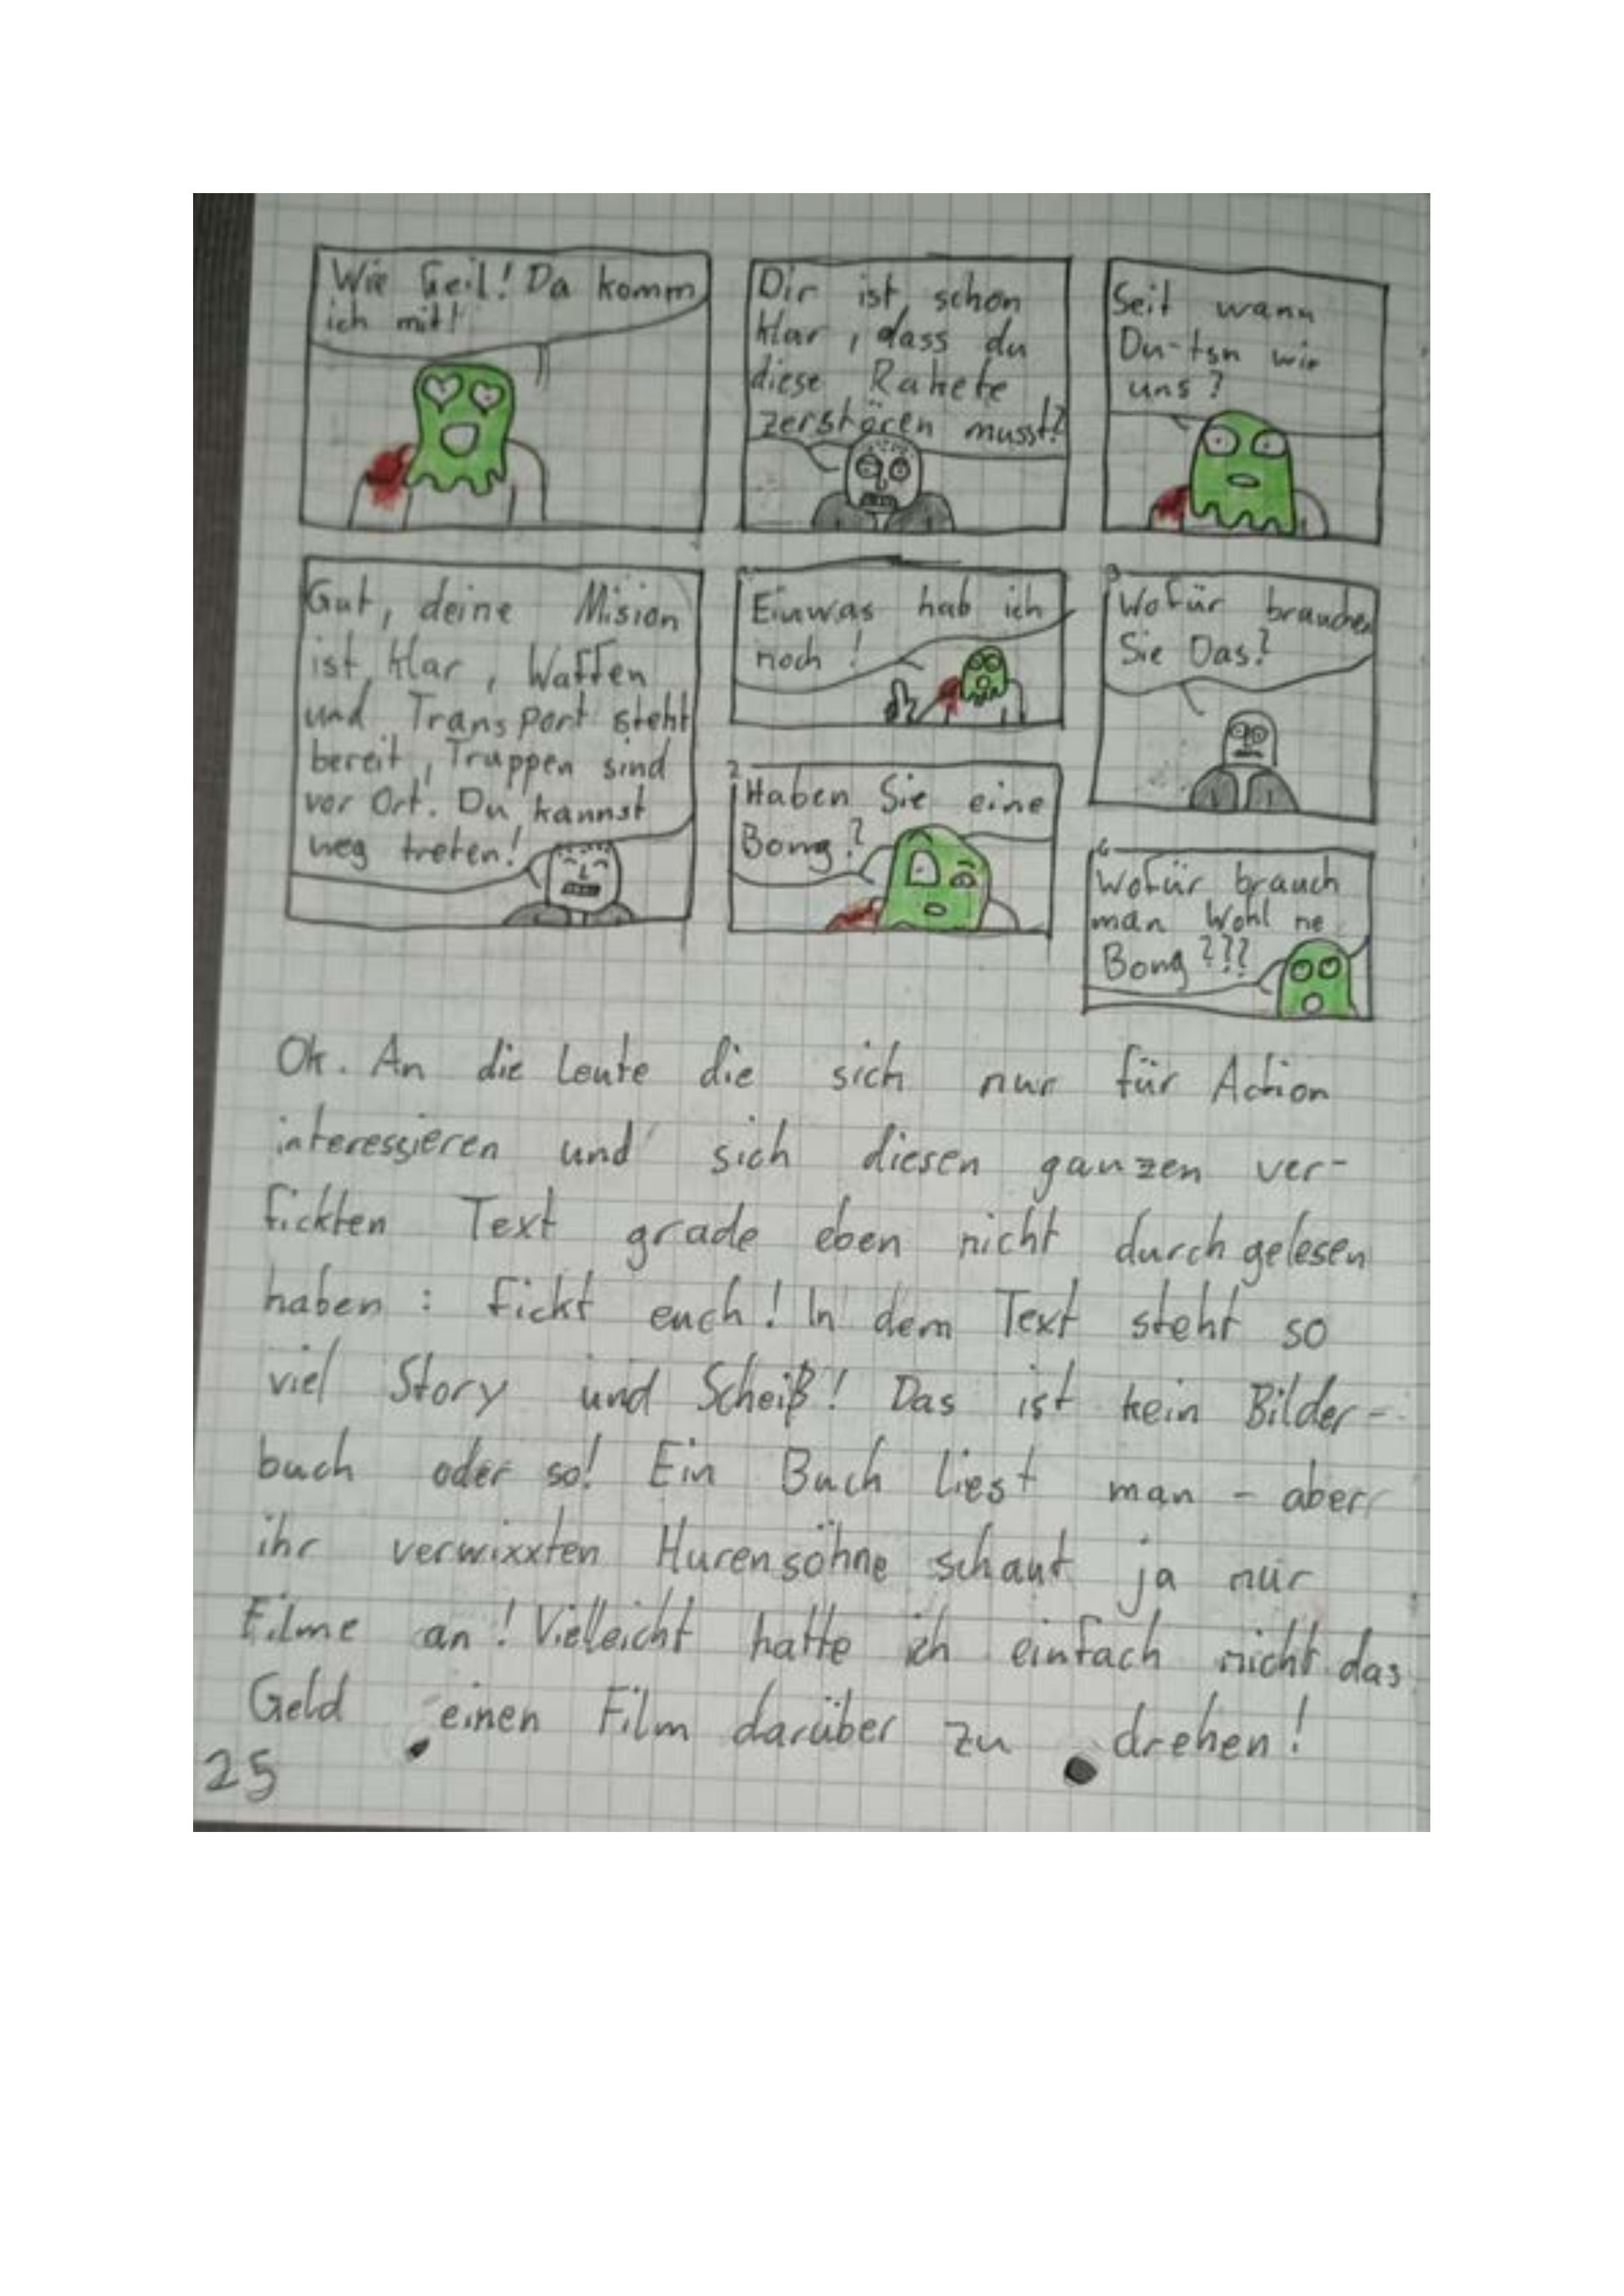 Wie Geil! Da komm
ich mit!
Dir ist schon
klar, dass du
diese Rakete
zerstören musst?
Seit wann
Du-tsn wir
uns?
Gut, deine Mision
ist klar, Waffen
und Transport steht
bereit, Truppen sind
vor Ort. Du kannst
weg treten!
Einwas hab ich
noch!
2
Haben Sie eine
Bong?
3
Wofür brauchen
Sie Das?
4
Wofür brauch
man Wohl ne
Bong???
Ok. An die Leute die sich nur für Action
interessieren und sich diesen ganzen ver-
fickten Text grade eben nicht durchgelesen
haben: fickt euch! In dem Text steht so
viel Story und Scheiß! Das ist kein Bilder-
buch oder so! Ein Buch liest man - aber
ihr verwixxten Hurensöhne schaut ja nur
Filme an! Vielleicht hatte ich einfach nicht das
Geld einen Film darüber zu drehen!
25